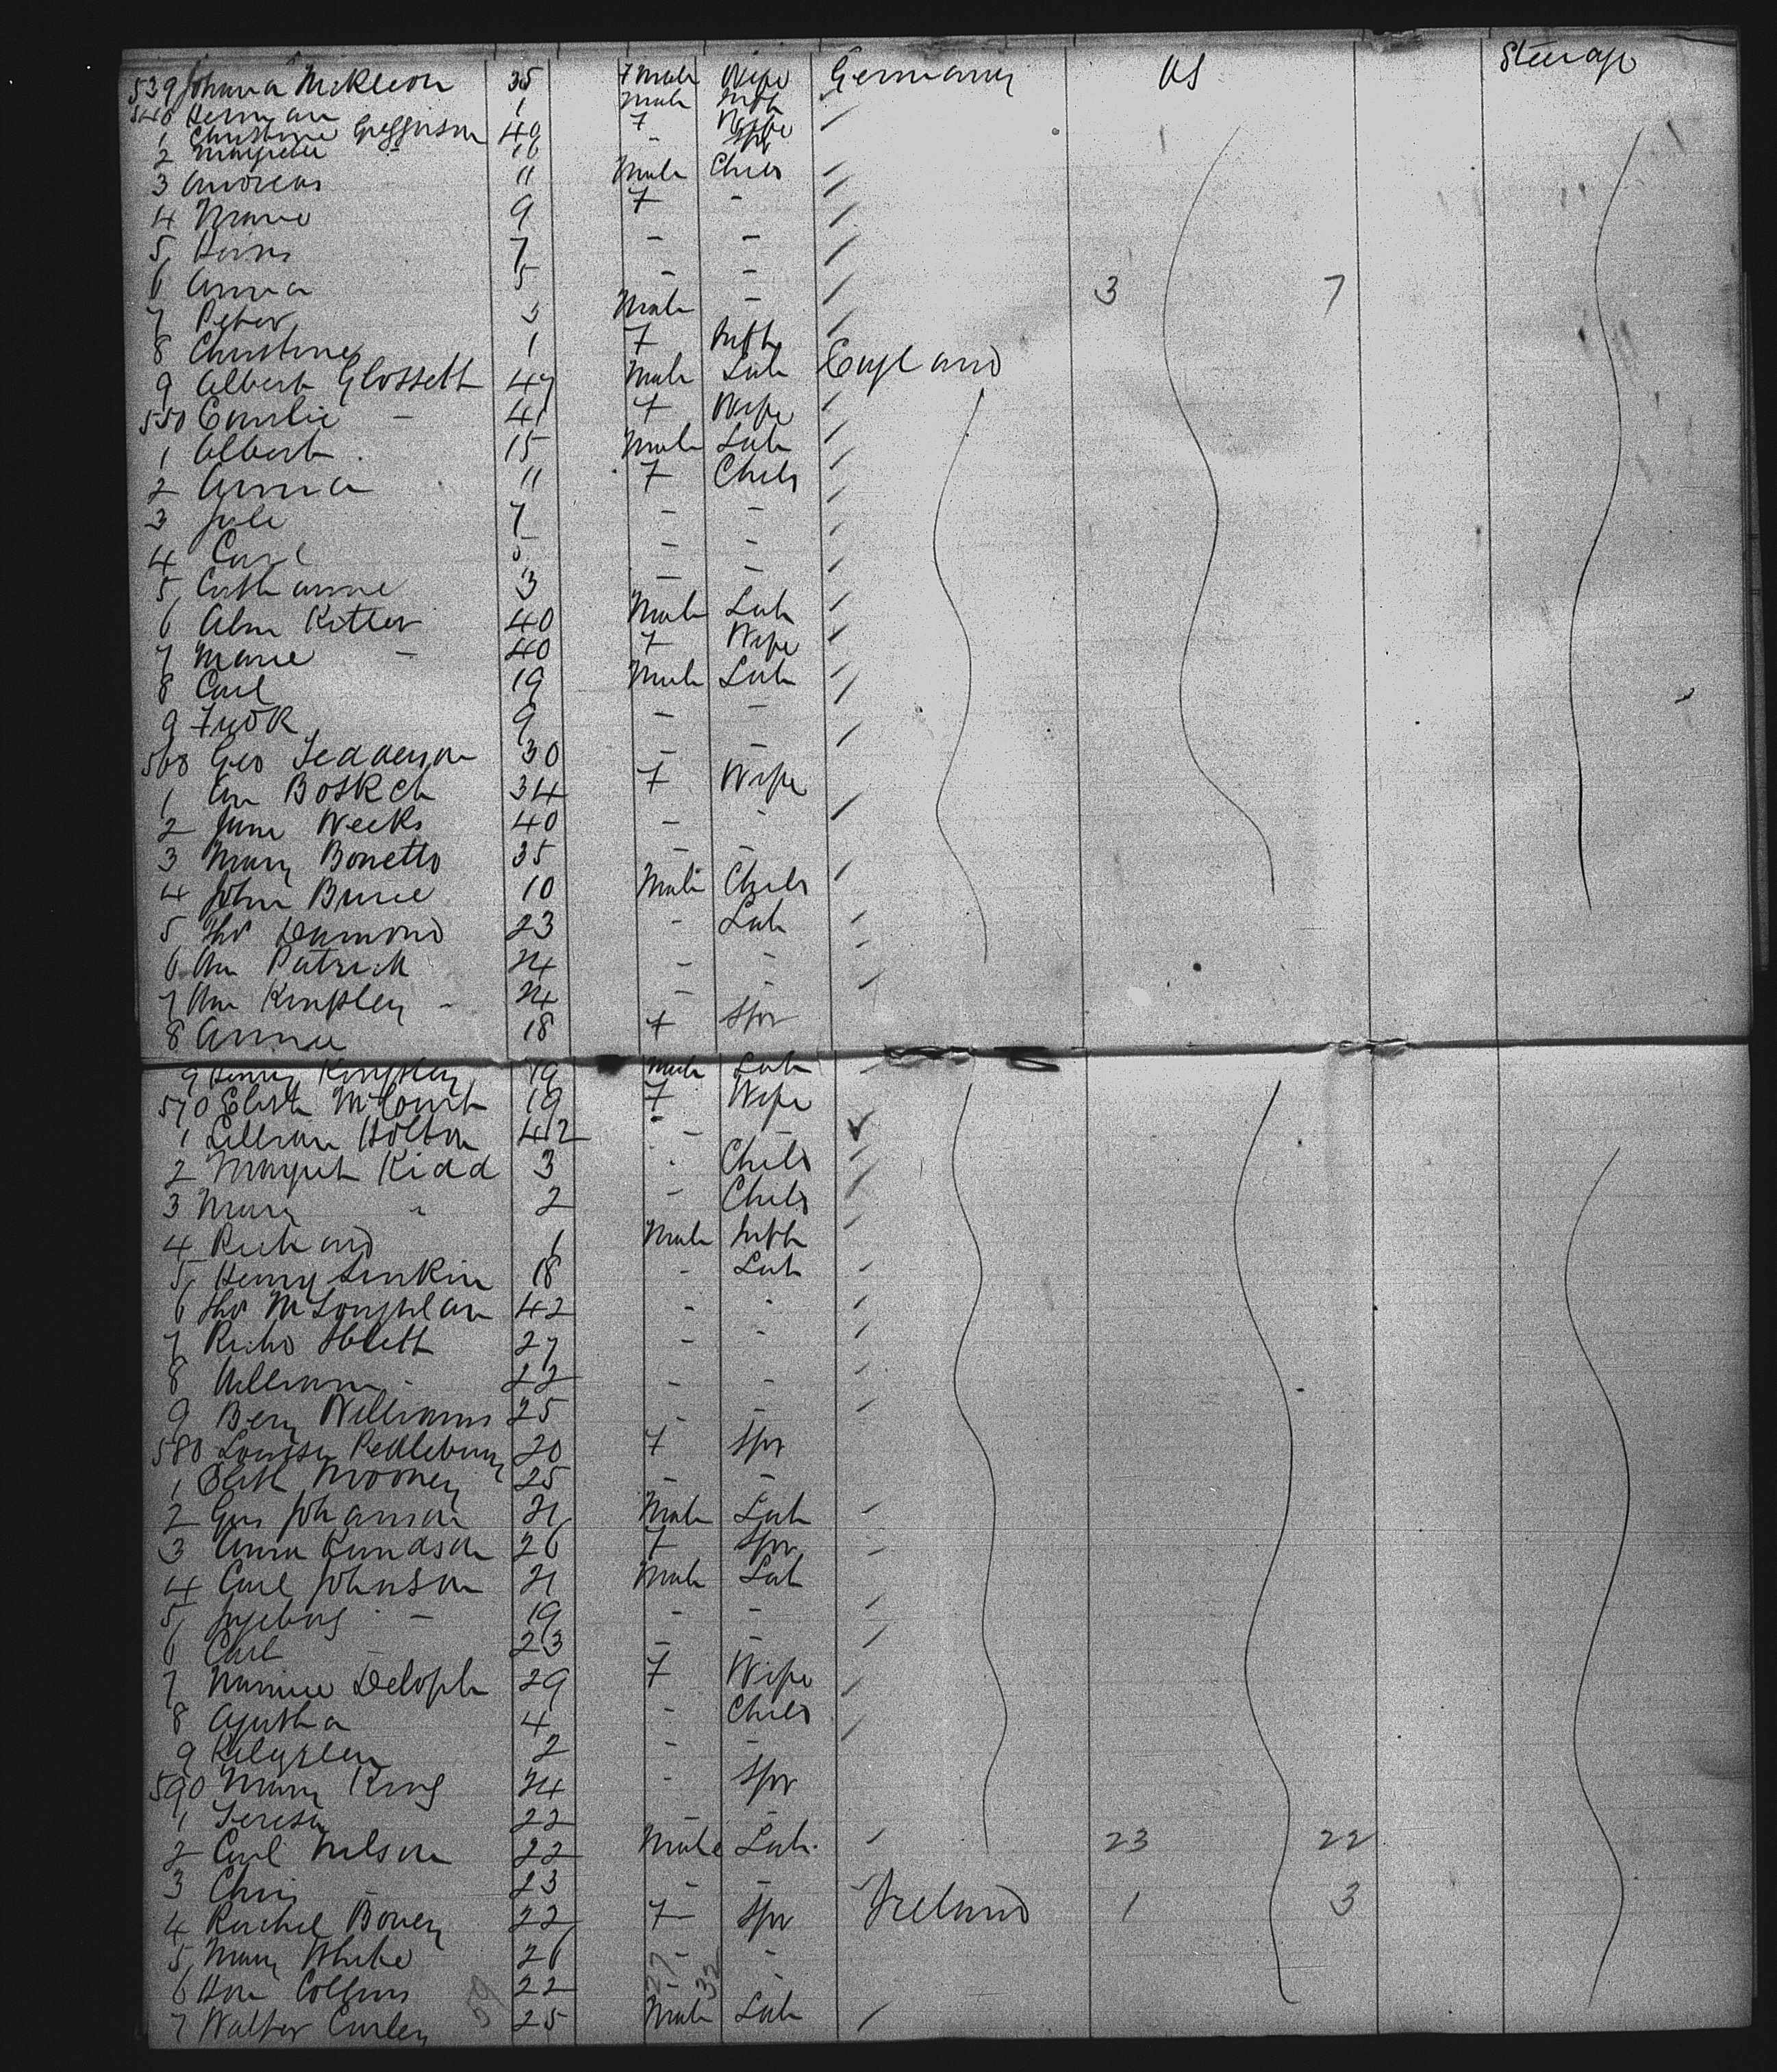 539 Johana Mikleion 35 Female Wife Germany US Steerage
540 Herman 1 Male Infth
1 Christine Greggerson 40 F Wife
2 Margrethe - 16 - Spr
3 Andreas 11 Male Child
4 Marie 9 F -
5 Hans 7 - -
6 Anna 5 - - 3 7
7 Peter 3 Male -
8 Christine 1 F Infth
9 Albert Glossett 47 Male Lab England
550 Emilie - 41 F Wife
1 Albert 15 Male Lab
2 Anna 11 F Child
3 Jule 7 - -
4 Carl 5 - -
5 Cathanne 3 - -
6 Abm Kitter 40 Male Lab
7 Marie - 40 F Wife
8 Carl 19 Male Lab
9 Fredk 9 - -
560 Geo 30 - -
1 Ann 34 F Wife
2 Jane Weeks 40 - -
3 Mary Bonetto 35 - -
4 John 10 Male Child
5 Tho Damond 23 - Lab
6 Wm Patrick 24 - -
7 Wm Kingsley - 24 - -
8 Annie 18 F Spr
9 Henry Kingsley 19 Male Lab
570 Elisth McCourt 19 F Wife
1 Lillian Holton 42 - - -
2 Margret Kidd 3 - Child
3 Mary " 2 - Child
4 Richard 1 Male Infth
5 Henry Larkin 18 - Lab
6 Tho McLoughlan 42 - -
7 Richd 27 - -
8 William - 22 - -
9 Benj Williams 25 - -
580 Louisa Pedlebury 20 F Spr
1 Elith Mooney 25 - -
2 Gus Johanson 21 Male Lab
3 Anna Kundson 26 F Spr
4 Carl Johnson 21 Male Lab
5 Ingeborg - 19 - -
6 Carl - 23 - -
7 Minnie Deloph 29 F Wife
8 Agutha 4 - Child
9 2 - -
590 Mary King 24 - Spr
1 Teresa 22 -
2 Carl Nelson 22 Male Lab 23 22
3 Chris - 23 - -
4 Rachel Boney 22 F Spr Ireland 1 3
5 Mary White 26 - -
6 Han Collins 22 - -
7 Walter Curley 25 Male Lab
59 27 32